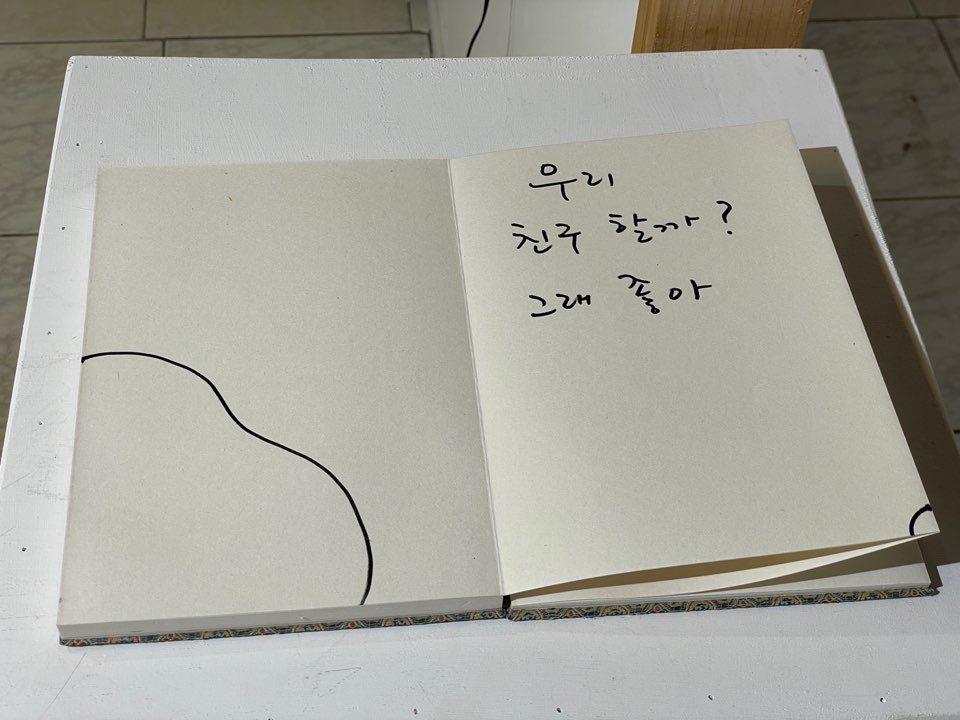 우리
친구 할까?
그래 좋아